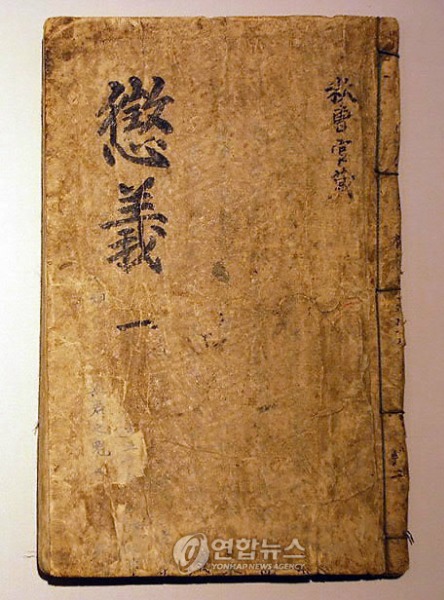 秋曹官藏
懲義 一
연합뉴스
YONHAP NEWS AGENCY